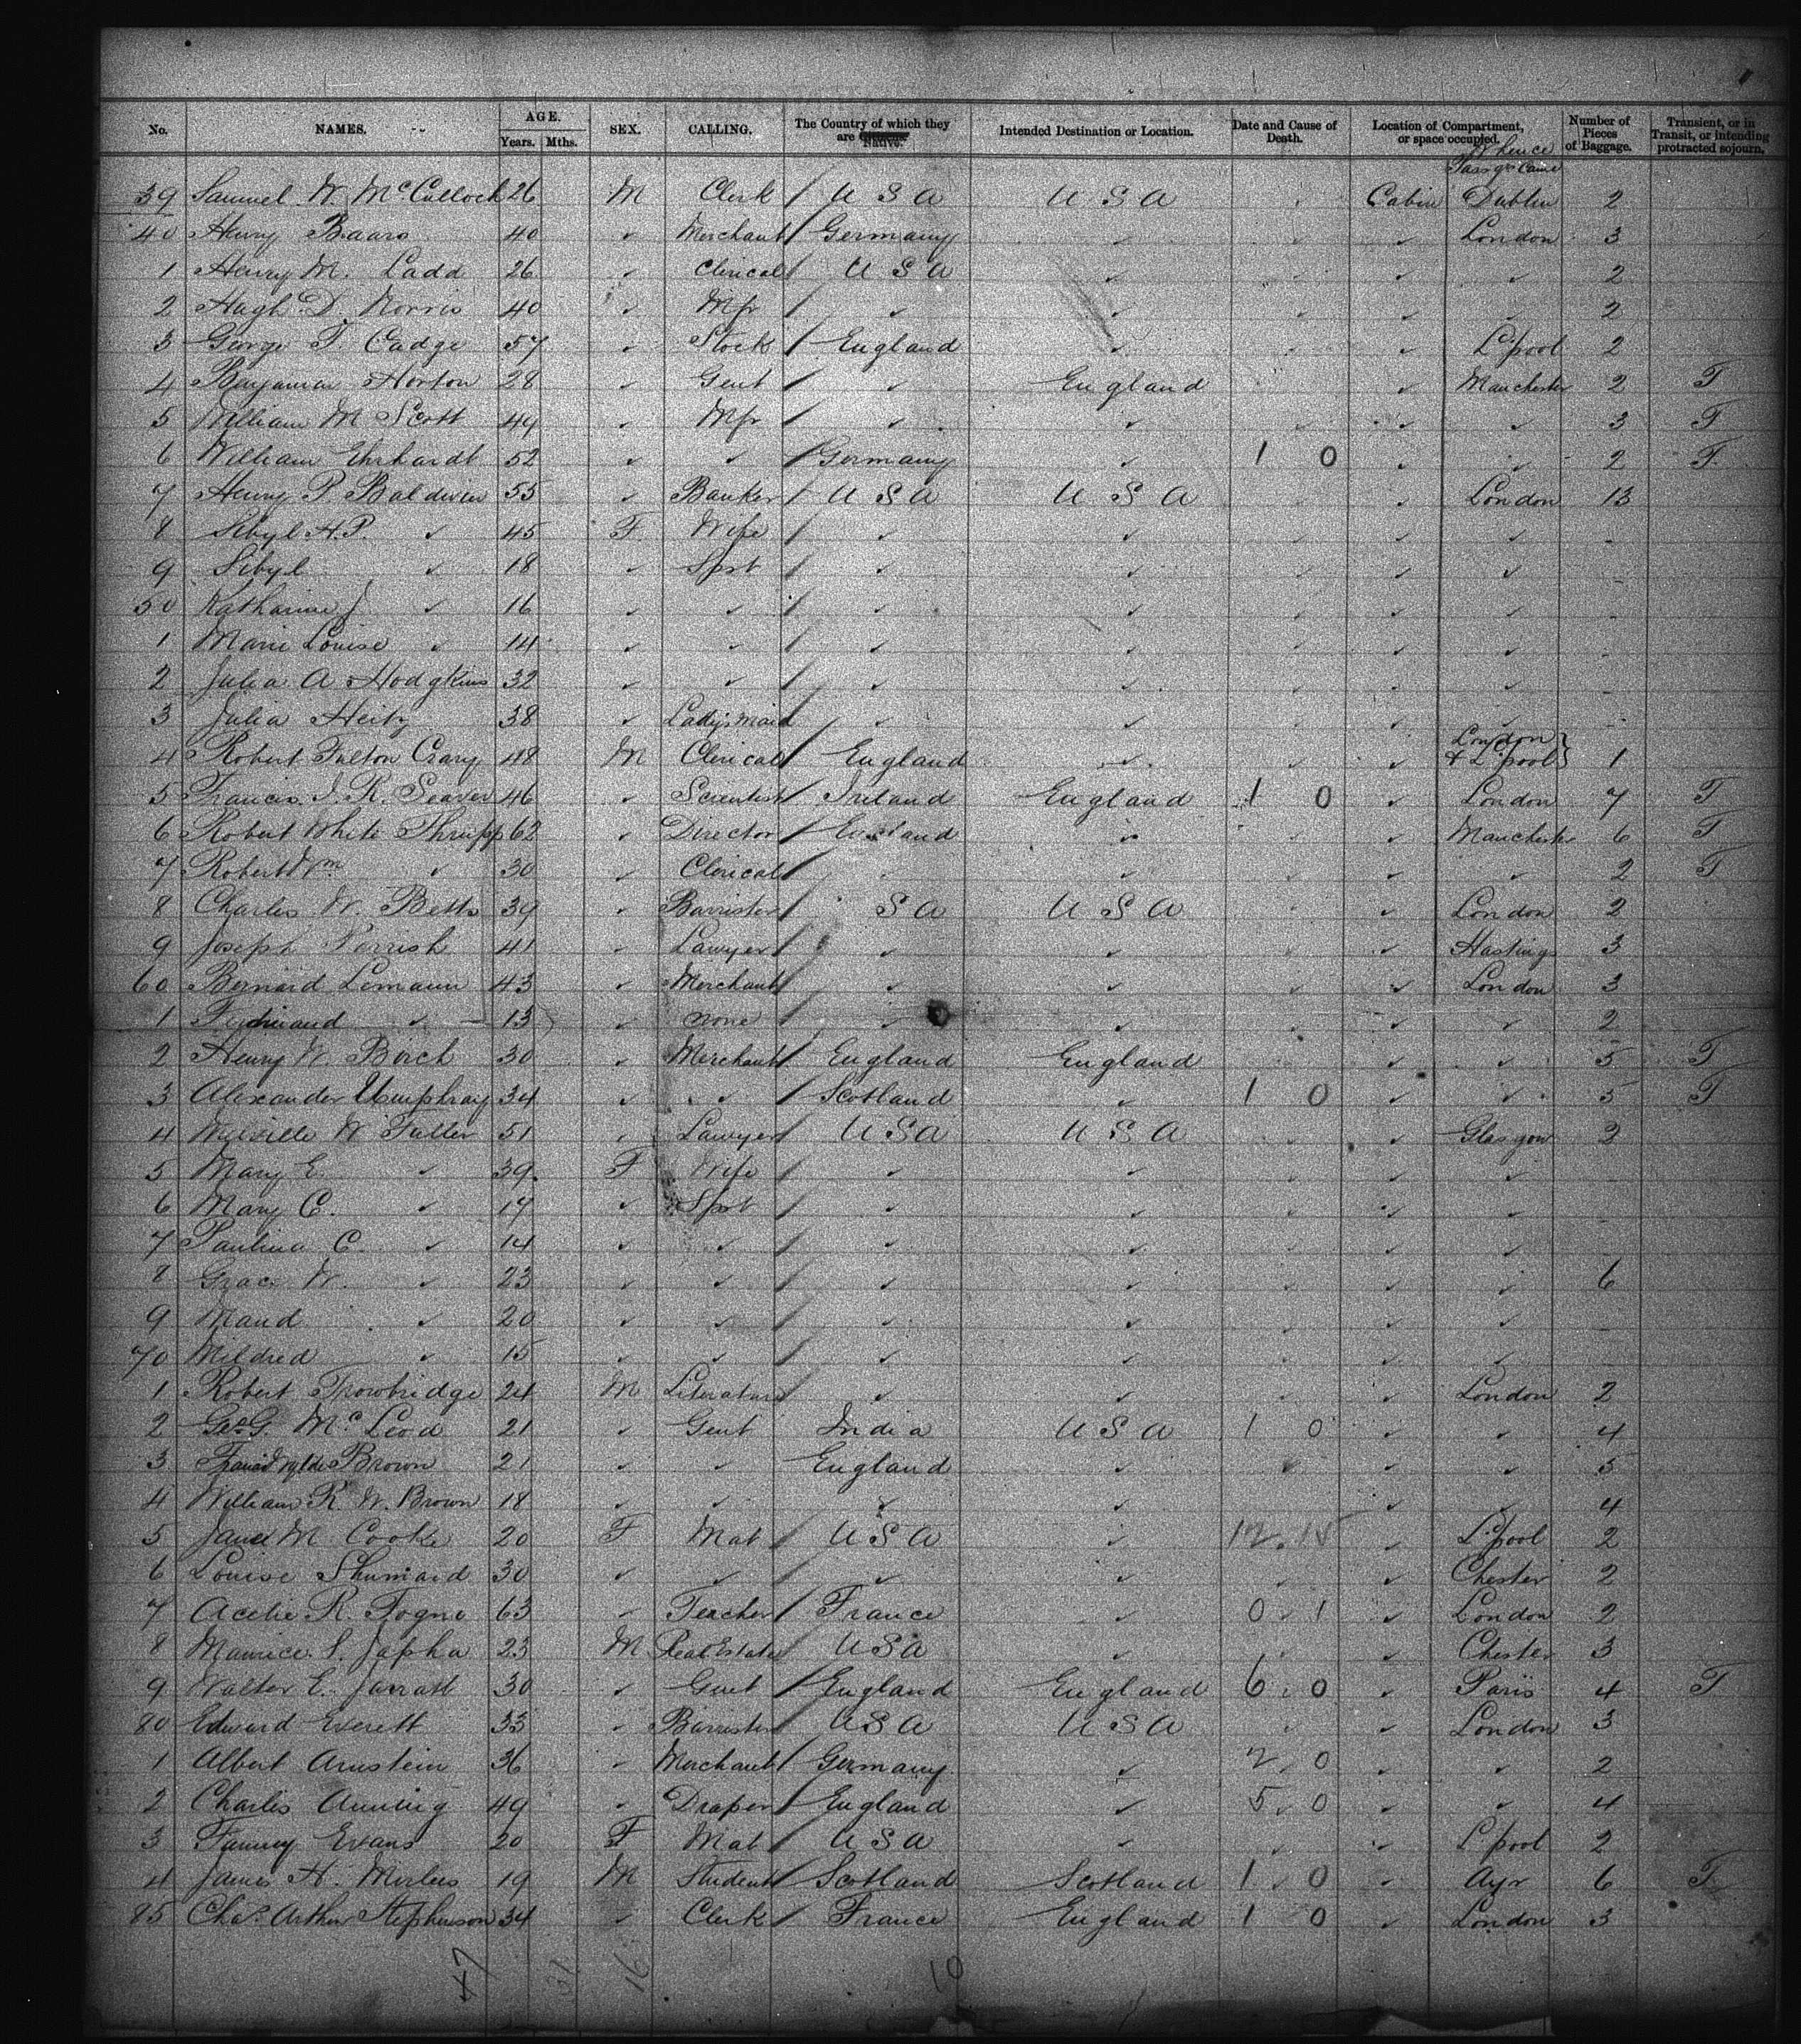 No. NAMES. AGE. Years. Mths. SEX. CALLING. The Country of which they are Native. Intended Destination or Location. Date and Cause of Death. Location of Compartment, or space occupied. Number of Pieces of Baggage. Transient, or in Transit, or intending protracted sojourn.
Whence Passgr Came
39 Samuel W. McCulloch 26 M Clerk / U S A U S A Cabin Dublin 2
40 Henry Baars 40 ✓ Merchant / Germany ✓ ✓ ✓ London 3
1 Henry M. Ladd 26 ✓ Clerical / U S A ✓ ✓ ✓ ✓ 2
2 Hugh D. Norris 40 ✓ Mfr / ✓ ✓ ✓ ✓ ✓ 2
3 George T. Cadge 57 ✓ Stock / England ✓ ✓ ✓ L'pool 2
4 Benjamin Horton 28 ✓ Gent / ✓ England ✓ Manchester 2 T
5 William M Scott 49 ✓ Mfr / ✓ ✓ ✓ ✓ ✓ 3 T
6 William Ehrhardt 52 ✓ ✓ / Germany ✓ 1 0 ✓ ✓ 2 T
7 Henry P Baldwin 55 ✓ Banker / U S A U S A ✓ London 13
8 Sibyl H.P. ✓ 45 F Wife / ✓ ✓ ✓ ✓ ✓ -
9 Sibyl ✓ 18 ✓ Spst / ✓ ✓ ✓ ✓ ✓ -
50 Katharine J ✓ 16 ✓ ✓ / ✓ ✓ ✓ ✓ ✓ -
1 Marie Louise ✓ 14 ✓ ✓ / ✓ ✓ ✓ ✓ ✓ -
2 Julia A Hodgkins 32 ✓ ✓ / ✓ ✓ ✓ ✓ ✓ -
3 Julia Heitz 38 ✓ Lady's maid / ✓ ✓ ✓ ✓ ✓ -
4 Robert Fulton Crary 48 M Clerical / England ✓ ✓ ✓ London & L'pool } 1
5 Francis J. R. Seaver 46 ✓ Scientist / Ireland England 1 0 ✓ London 7 T
6 Robert White Thrupp 62 ✓ Director / England ✓ ✓ ✓ Manchester 6 T
7 Robert Wm ✓ 30 ✓ Clerical / ✓ ✓ ✓ ✓ ✓ 2 T
8 Charles W. Betts 39 ✓ Barrister / S A U S A ✓ London 2
9 Joseph Parrish 41 ✓ Lawyer / ✓ ✓ ✓ ✓ Hastings 3
60 Bernard Lemann 43 ✓ Merchant / ✓ ✓ ✓ ✓ London 3
1 Ferdinand ✓ 13 ✓ none / ✓ ✓ ✓ ✓ ✓ 2
2 Henry W. Birch 30 ✓ Merchant / England England ✓ ✓ 5 T
3 Alexander Umphray 34 ✓ ✓ / Scotland ✓ 1 0 ✓ ✓ 5 T
4 Melville W Fuller 51 ✓ Lawyer / U S A U S A ✓ Glasgow 2
5 Mary E. ✓ 39 F Wife / ✓ ✓ ✓ ✓ ✓
6 Mary C. ✓ 17 ✓ Spst / ✓ ✓ ✓ ✓ ✓
7 Paulina C. ✓ 14 ✓ ✓ / ✓ ✓ ✓ ✓ ✓
8 Grace W. ✓ 23 ✓ ✓ / ✓ ✓ ✓ ✓ ✓ 6
9 Maud ✓ 20 ✓ ✓ / ✓ ✓ ✓ ✓ ✓
70 Mildred ✓ 15 ✓ ✓ / ✓ ✓ ✓ ✓ ✓
1 Robert Trowbridge 24 M Literature / ✓ ✓ ✓ ✓ London 2
2 Geo G. McLeod 21 ✓ Gent India U S A 1 0 ✓ ✓ 4
3 Brown 21 ✓ ✓ England ✓ ✓ ✓ ✓ 5
4 William R. W. Brown 18 ✓ ✓ ✓ ✓ ✓ ✓ 4
5 Janet M Cooke 20 F Mat / U S A ✓ 12. 15 ✓ L'pool 2
6 Louise Shumard 30 ✓ ✓ / ✓ ✓ ✓ ✓ Chester 2
7 Acelie R. Togno 63 ✓ Teacher / France ✓ 0 1 ✓ London 2
8 Maurice S. Japha 23 M Real Estate / U S A ✓ ✓ ✓ Chester 3
9 Walter E. Jarratt 30 ✓ Gent / England England 6 0 ✓ Paris 4 T
80 Edward Everett 33 ✓ Barrister / U S A U S A ✓ London 3
1 Albert Arnstein 36 ✓ Merchant / Germany ✓ 2 0 ✓ ✓ 2
2 Charles Anning 49 ✓ Draper / England ✓ 5 0 ✓ ✓ 4
3 Fanny Evans 20 F Mat / U S A ✓ ✓ ✓ L'pool 2
4 James H. 19 M Student / Scotland Scotland 1 0 ✓ Ayr 6 T
85 Chas. Arthur Stephenson 34 ✓ Clerk / France England 1 0 ✓ London 3
47 31 16 10